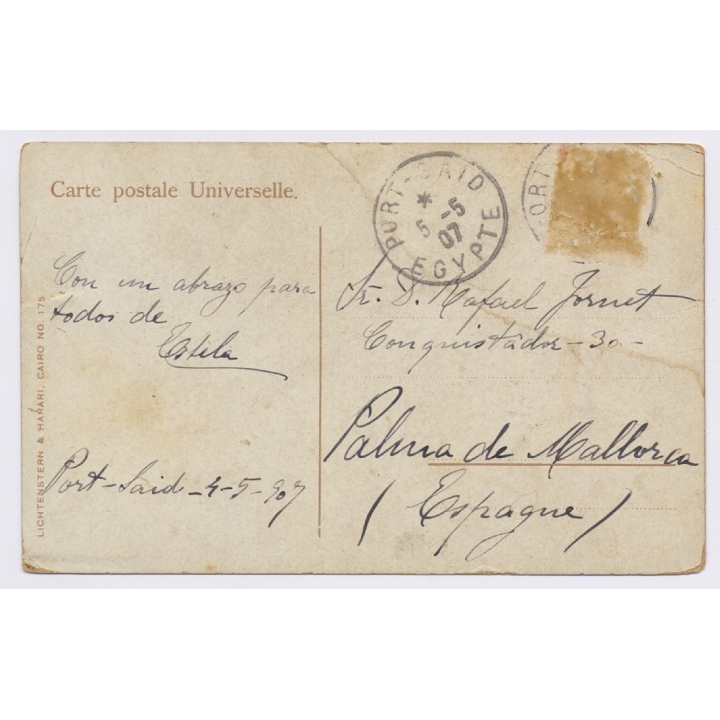 Carte postale Universelle.
PORT-SAID
* 5-5
07
EGYPTE
ORT
Con un abrazo para
todos de
Estela
Port-Said-4-5-907
Sr. D. Rafael Jornet
Conquistador-30-
Palma de Mallorca
(Espagne)
LICHTENSTERN & HARARI, CAIRO NO. 175